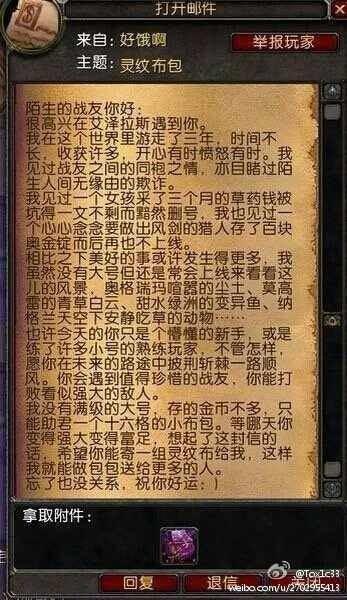 打开邮件
来自：好饿啊
举报玩家
主题：灵纹布包
陌生的战友你好：
很高兴在艾泽拉斯遇到你。
我在这个世界里游走了三年，时间不
长，收获许多，开心有时愤怒有时。我
见过战友之间的同袍之情，亦目睹过陌
生人间无缘由的欺诈。
我见过一个女孩采了三个月的草药钱被
坑得一文不剩而黯然删号，我也见过一
个心心念念要做出风剑的猎人存了百块
奥金锭而后再也不上线。
相比之下美好的事或许发生得更多，我
虽然没有大号但还是常会上线来看看这
儿的风景，奥格瑞玛喧嚣的尘土、莫高
雷的青草白云、甜水绿洲的变异鱼、纳
格兰天空下安静吃草的动物……
也许今天的你只是个懵懂的新手，或是
练了许多小号的熟练玩家，不管怎样，
愿你在未来的路途中披荆斩棘一路顺
风。你会遇到值得珍惜的战友，你能打
败看似强大的敌人。
我没有满级的大号，存的金币不多，只
能助君一个十六格的小布包。等哪天你
变得强大变得富足，想起了这封信的
话，希望你能寄一组灵纹布给我，这样
我就能做包包送给更多的人。
忘了也没关系，祝你好运：）
拿取附件：
回复
退信
关闭
@Tox1c33
weibo.com/u/2702955413